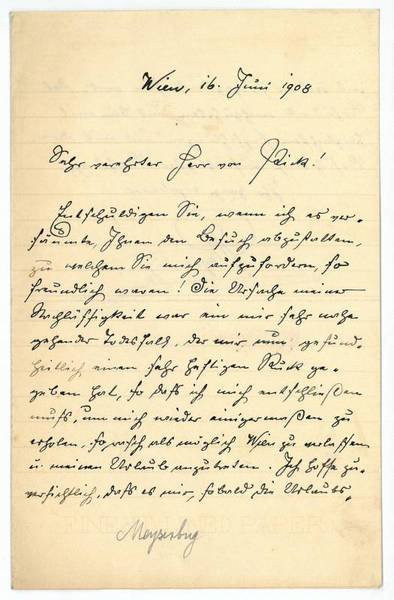 Wien, 16. Juni 1908
Sehr verehrter Herr von Rick!
Entschuldigen Sie, wenn ich es ver-
säumte, Ihnen den Besuch abzustatten,
zu welchem Sie mich aufzufordern, so
freundlich waren! Die Ursache meiner
Nachlässigkeit war ein mir sehr nahe
gehender Todesfall, der mir nun gesund-
heitlich einen sehr heftigen Ruck ge-
geben hat, so daß ich mich entschließen
muß, um mich wieder einigermaßen zu
erholen, so rasch als möglich Wien zu verlassen
u meinen Urlaub anzutreten. Ich hoffe zu-
versichtlich, daß es mir, sobald die Urlaubs-